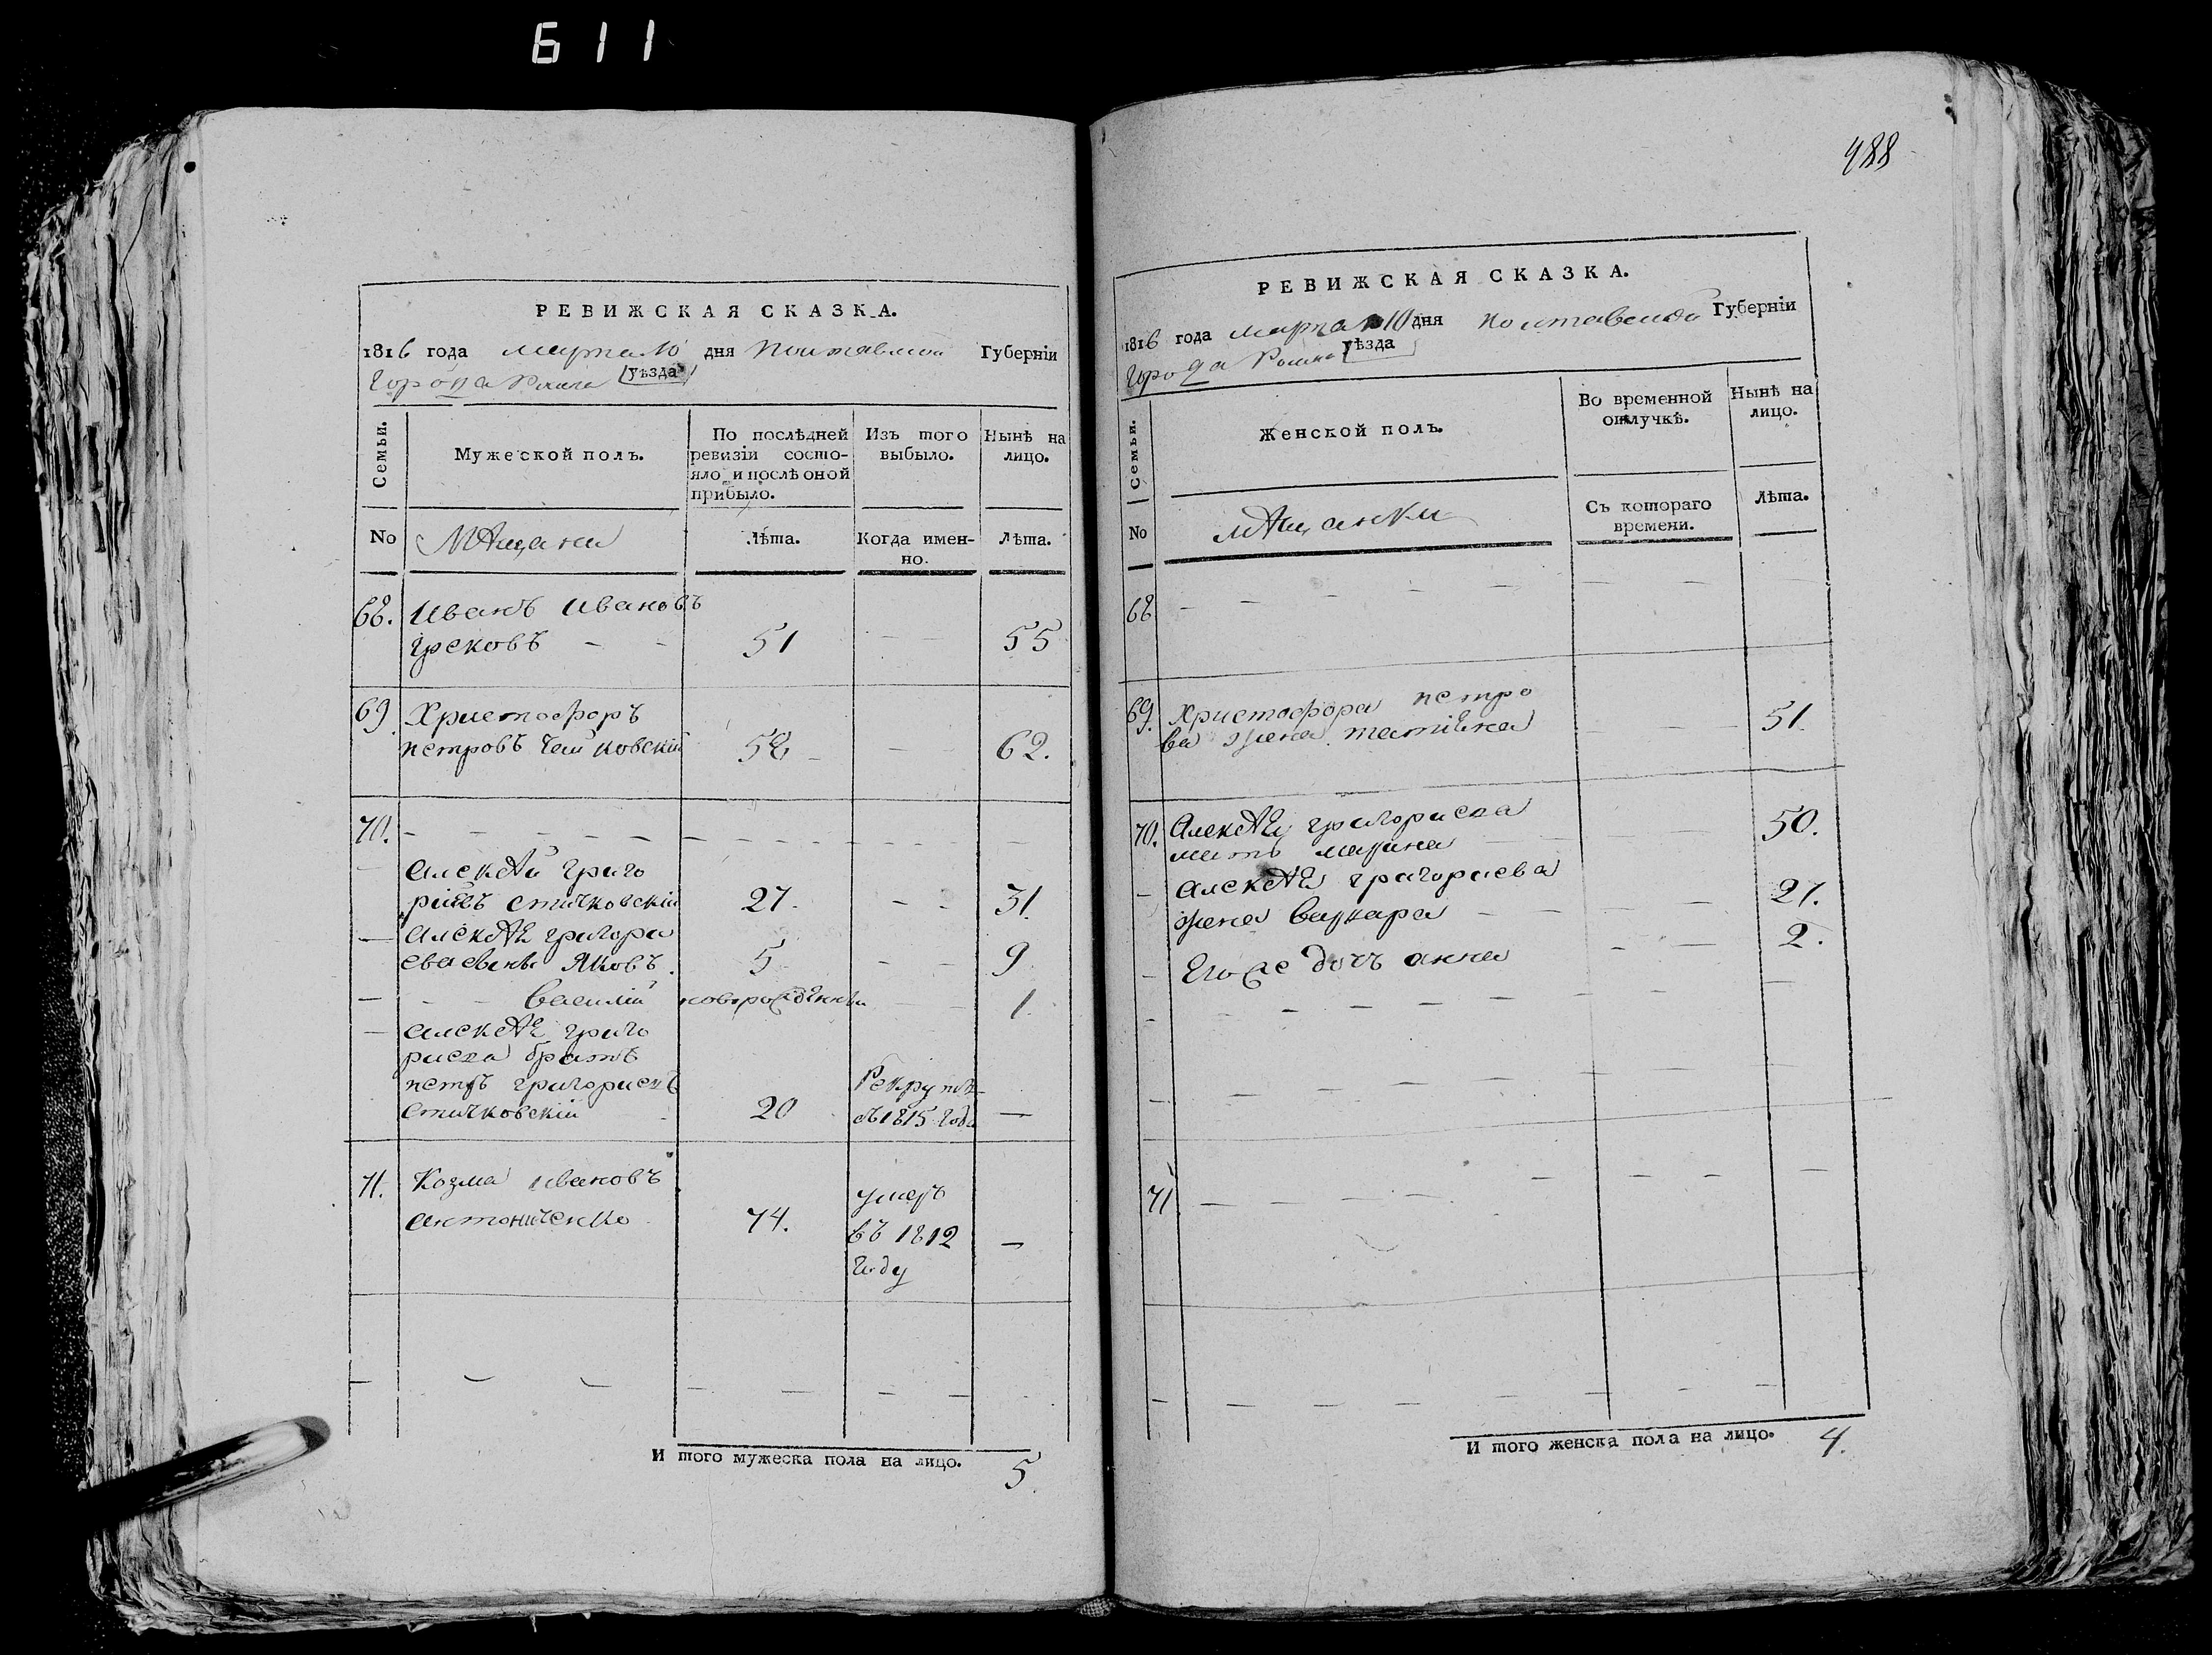 611
РЕВИЖСКАЯ СКАЗКА.
1816 года марта 10 дня Полтавской Губерніи
города Ромна Уѣзда
Семьи.
Мужеской полъ.
По послѣдней ревизіи состояло и послѣ оной прибыло.
Изъ того выбыло.
Нынѣ на лицо.
No
Мѣщани
Лѣта.
Когда имен-
но.
Лѣта.
68. Иванъ Ивановъ
грековъ - - 51 - - 55
69 Христофоръ
петровъ Чайковскій 58 - - 62.
70. - - - - - - - -
алексѣй григо
рiевъ стичковскій 27. - - 31.
алексѣя григори
ева сынъ Яковъ. 5 - - 9
- - Василій новорожденный - 1.
алексѣя григо
риева братъ
петръ григориевъ
стичковскій 20 Рекрутъ
съ 1815 года —
71. Козма ивановъ
антониченко 74. умеръ
въ 1812 —
году
И того мужеска пола на лицо. 5.
488
РЕВИЖСКАЯ СКАЗКА.
1816 года марта 10 дня Полтавской Губерніи
города Ромна Уѣзда
Семьи.
Женской полъ.
Во временной отлучкѣ.
Нынѣ на лицо.
No
мѣщанки
Съ котораго
времени.
Лѣта.
68 - - - - - -
69. Христофора петро
ва жена татіяна - - 51.
70. Алексѣя григориева
мать марина - - 50.
алексѣя григориева
жена варвара - - 27.
Его же дочь анна - - 2.
71 - - - - - -
И того женска пола на лицо. 4.